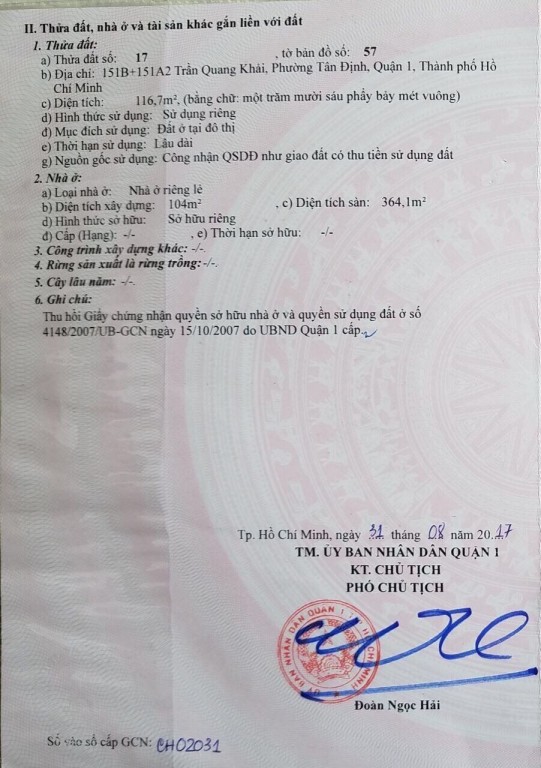 II. Thửa đất, nhà ở và tài sản khác gắn liền với đất
1. Thửa đất:
a) Thửa đất số: 17 , tờ bản đồ số: 57
b) Địa chỉ: 151B+151A2 Trần Quang Khải, Phường Tân Định, Quận 1, Thành phố Hồ
Chí Minh
c) Diện tích: 116,7m², (bằng chữ: một trăm mười sáu phẩy bảy mét vuông)
d) Hình thức sử dụng: Sử dụng riêng
đ) Mục đích sử dụng: Đất ở tại đô thị
e) Thời hạn sử dụng: Lâu dài
g) Nguồn gốc sử dụng: Công nhận QSDĐ như giao đất có thu tiền sử dụng đất
2. Nhà ở:
a) Loại nhà ở: Nhà ở riêng lẻ
b) Diện tích xây dựng: 104m² , c) Diện tích sàn: 364,1m²
d) Hình thức sở hữu: Sở hữu riêng
đ) Cấp (Hạng): -/- , e) Thời hạn sở hữu: -/-
3. Công trình xây dựng khác: -/-.
4. Rừng sản xuất là rừng trồng:-/-.
5. Cây lâu năm: -/-.
6. Ghi chú:
Thu hồi Giấy chứng nhận quyền sở hữu nhà ở và quyền sử dụng đất ở số
4148/2007/UB-GCN ngày 15/10/2007 do UBND Quận 1 cấp.
Tp. Hồ Chí Minh, ngày 31 tháng 08 năm 2017
TM. ỦY BAN NHÂN DÂN QUẬN 1
KT. CHỦ TỊCH
PHÓ CHỦ TỊCH
BAN NHÂN DÂN QUẬN 1
Đoàn Ngọc Hải
Số vào sổ cấp GCN: CH02031